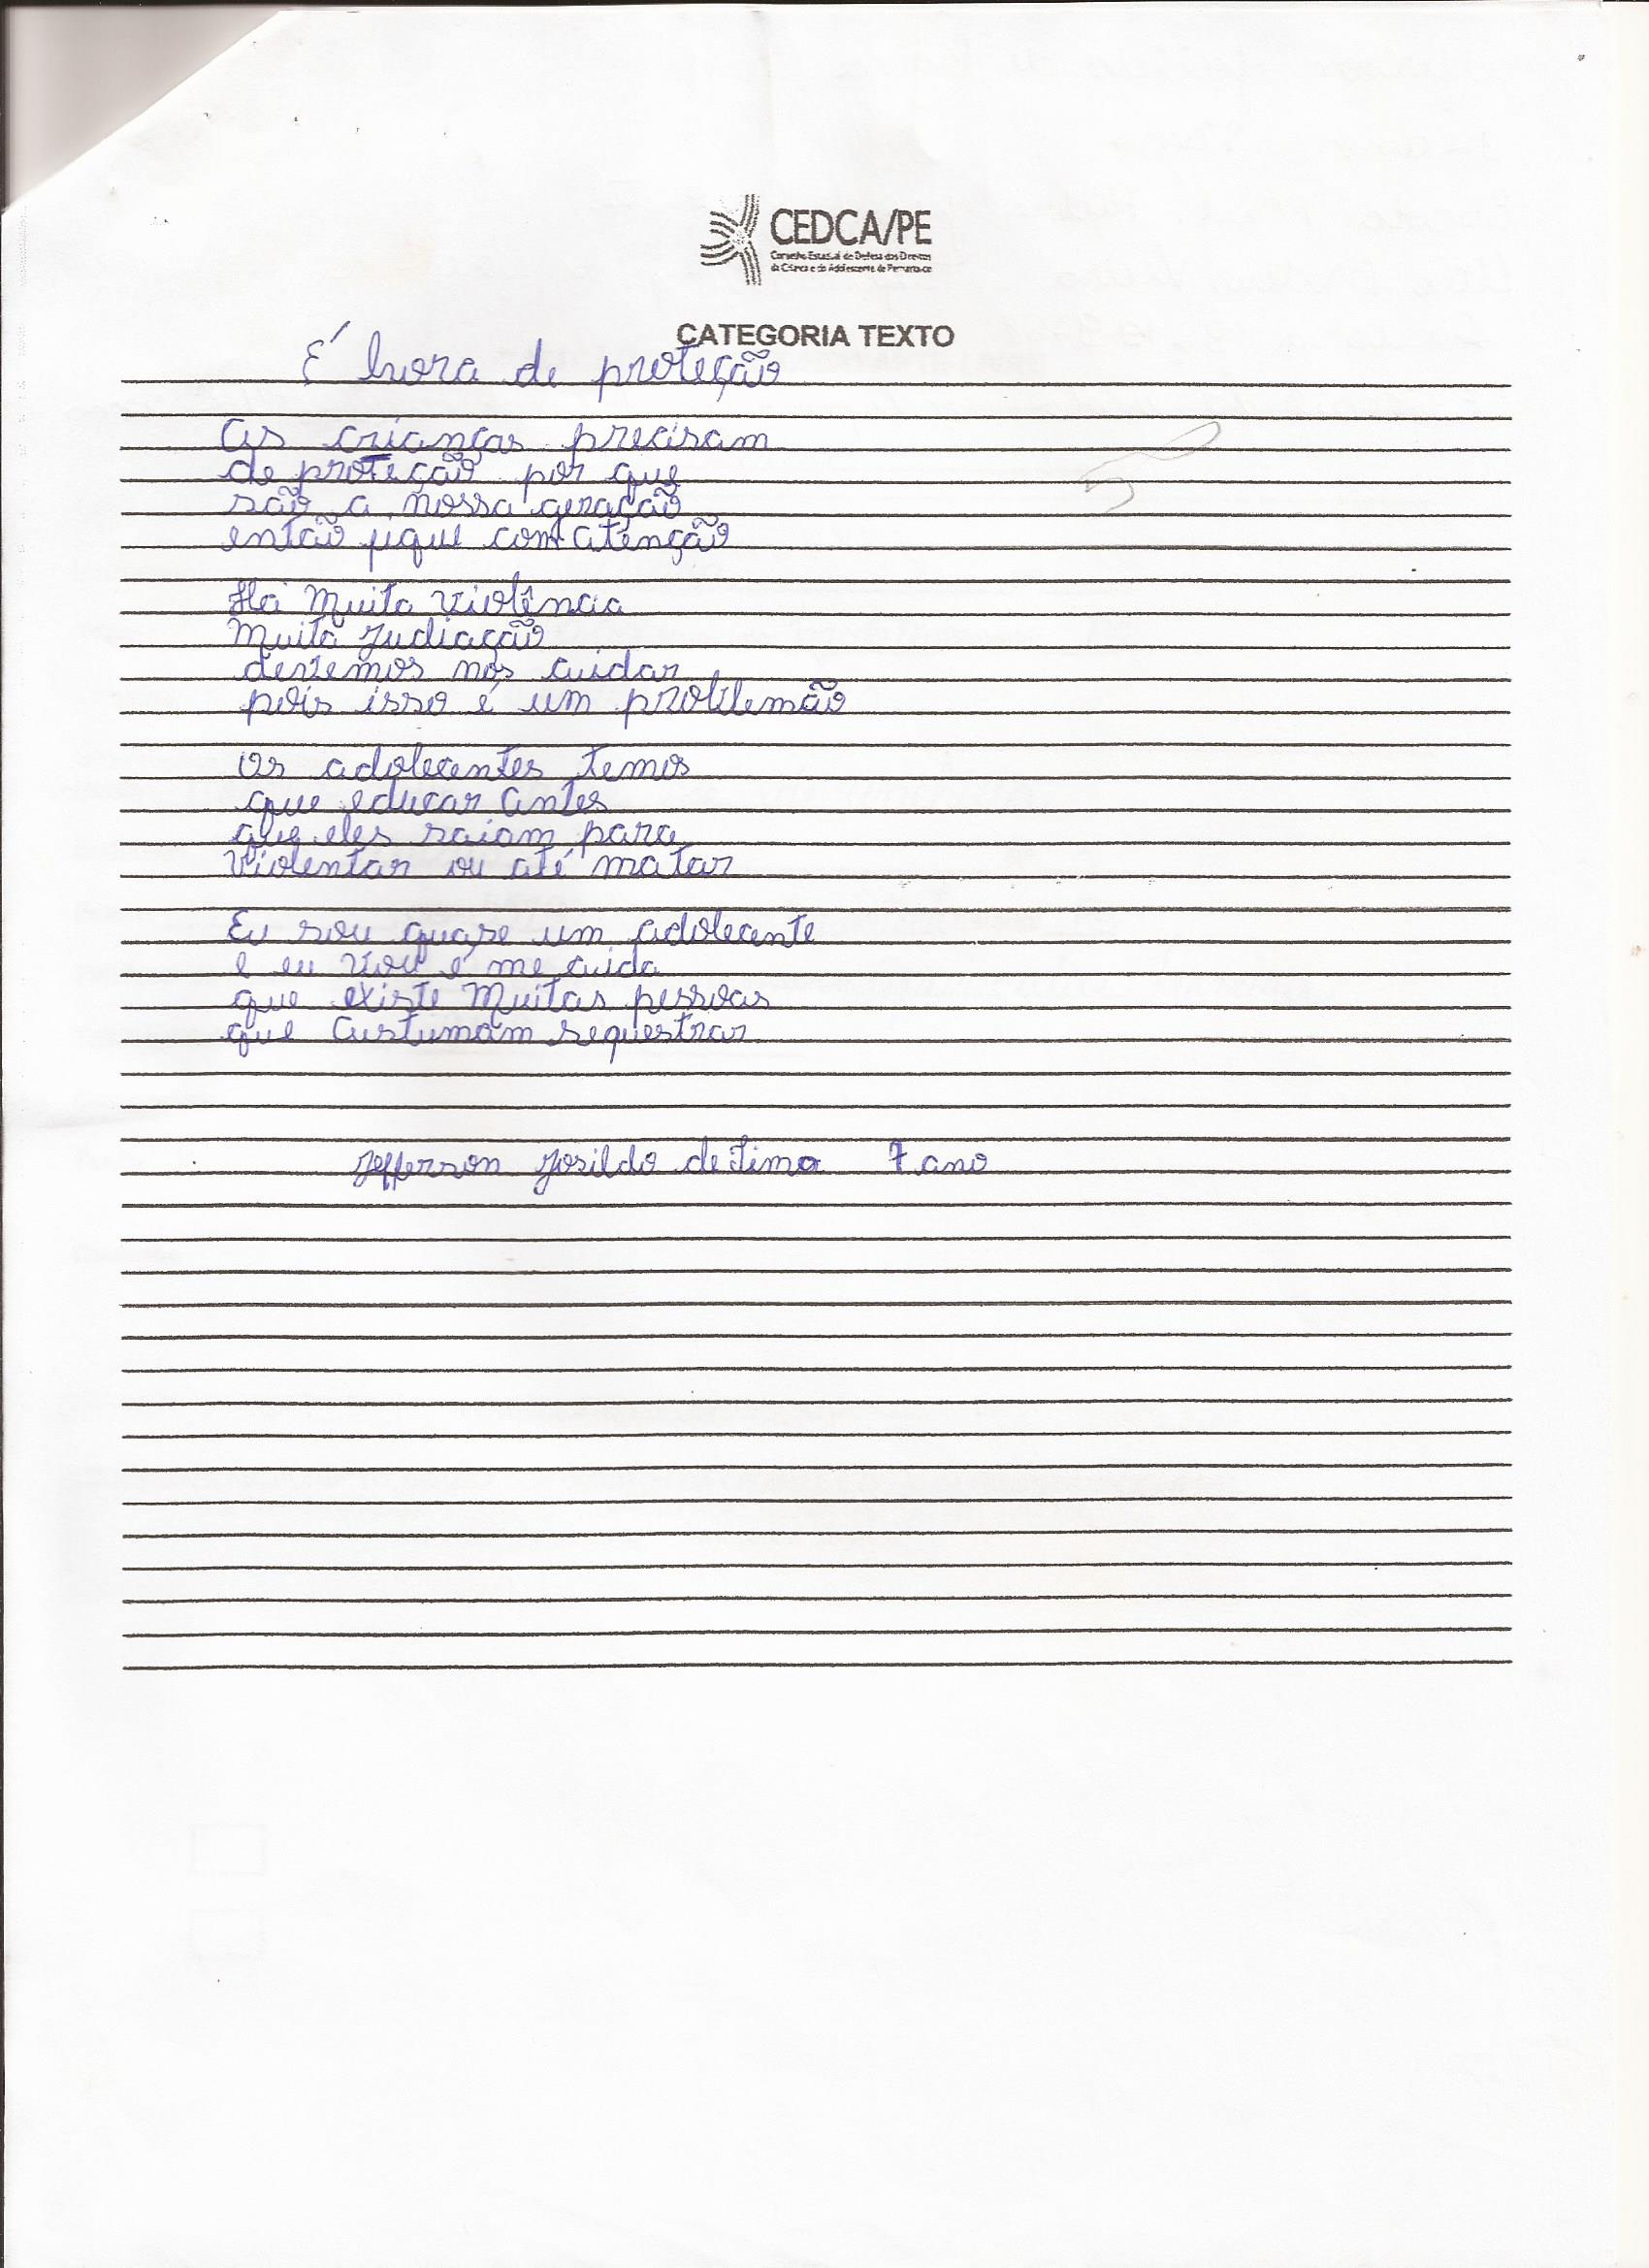 CEDCA/PE
Conselho Estadual de Defesa dos Direitos
da Criança e do Adolescente de Pernambuco
CATEGORIA TEXTO
É hora de proteção
As crianças precisam
de proteção por que
são a nossa geração
então fique com atenção
Há Muita violência
Muita Judiação
devemos nos cuidar
pois isso é um problemão
Os adolecentes temos
que educar antes
que eles saiam para
violentar ou até matar
Eu sou quase um adolecente
e eu vou é me cuida
que existe Muitas pessoas
que Custumam sequestrar
Jefferson Josildo de Lima 7 ano